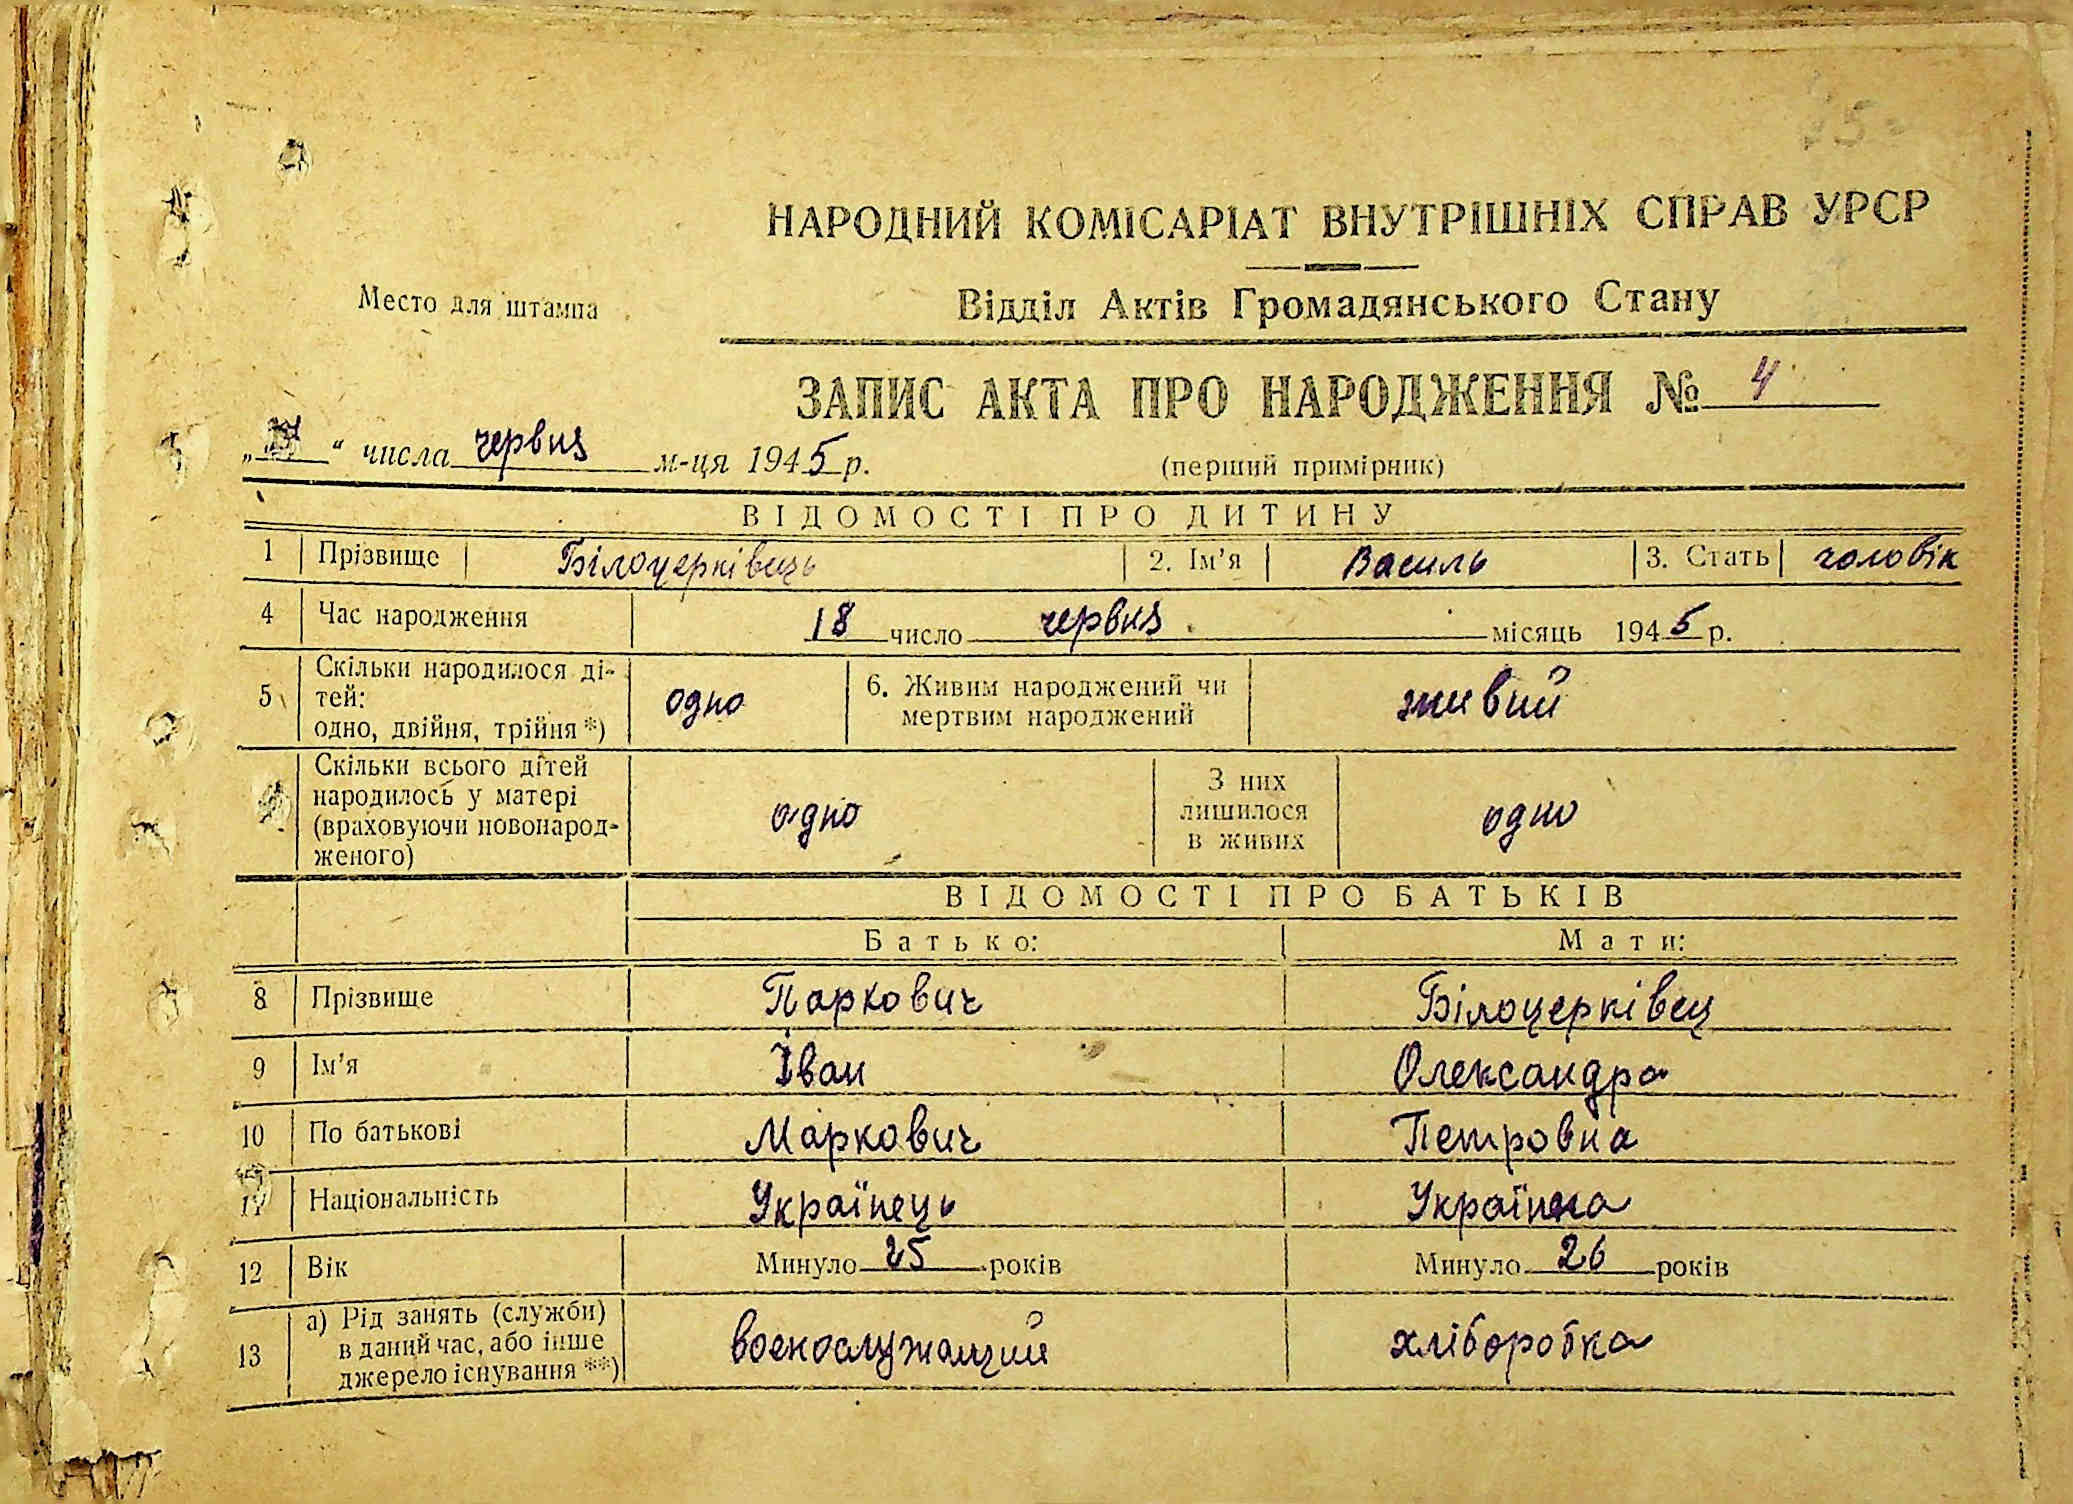 НАРОДНИЙ КОМІСАРІАТ ВНУТРІШНІХ СПРАВ УРСР
Место для штампа
Відділ Актів Громадянського Стану
ЗАПИС АКТА ПРО НАРОДЖЕННЯ № 4
„ “ числа червня м-ця 1945 р.
(перший примірник)
ВІДОМОСТІ ПРО ДИТИНУ
1 Прізвище Білоцерківець 2. Ім’я Василь 3. Стать чоловік
4 Час народження 18 число червня місяць 1945 р.
5 Скільки народилося ді-
тей:
одно, двійня, трійня *) одно 6. Живим народжений чи
мертвим народжений живий
Скільки всього дітей
народилось у матері
(враховуючи новонарод-
женого) одно З них
лишилося
в живих одно
ВІДОМОСТІ ПРО БАТЬКІВ
Батько: Мати:
8 Прізвище Паркович Білоцерківец
9 Ім’я Іван Олександра
10 По батькові Маркович Петровна
11 Національність Українець Українка
12 Вік Минуло 25 років Минуло 26 років
13 а) Рід занять (служби)
в даний час, або інше
джерело існування **) воєнослужащий хліборобка